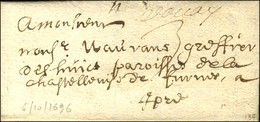 A monsieur
Wauvans greffier
des huict paroisses de la
chastellenie de furnes, a
Ipre
6/10/1696